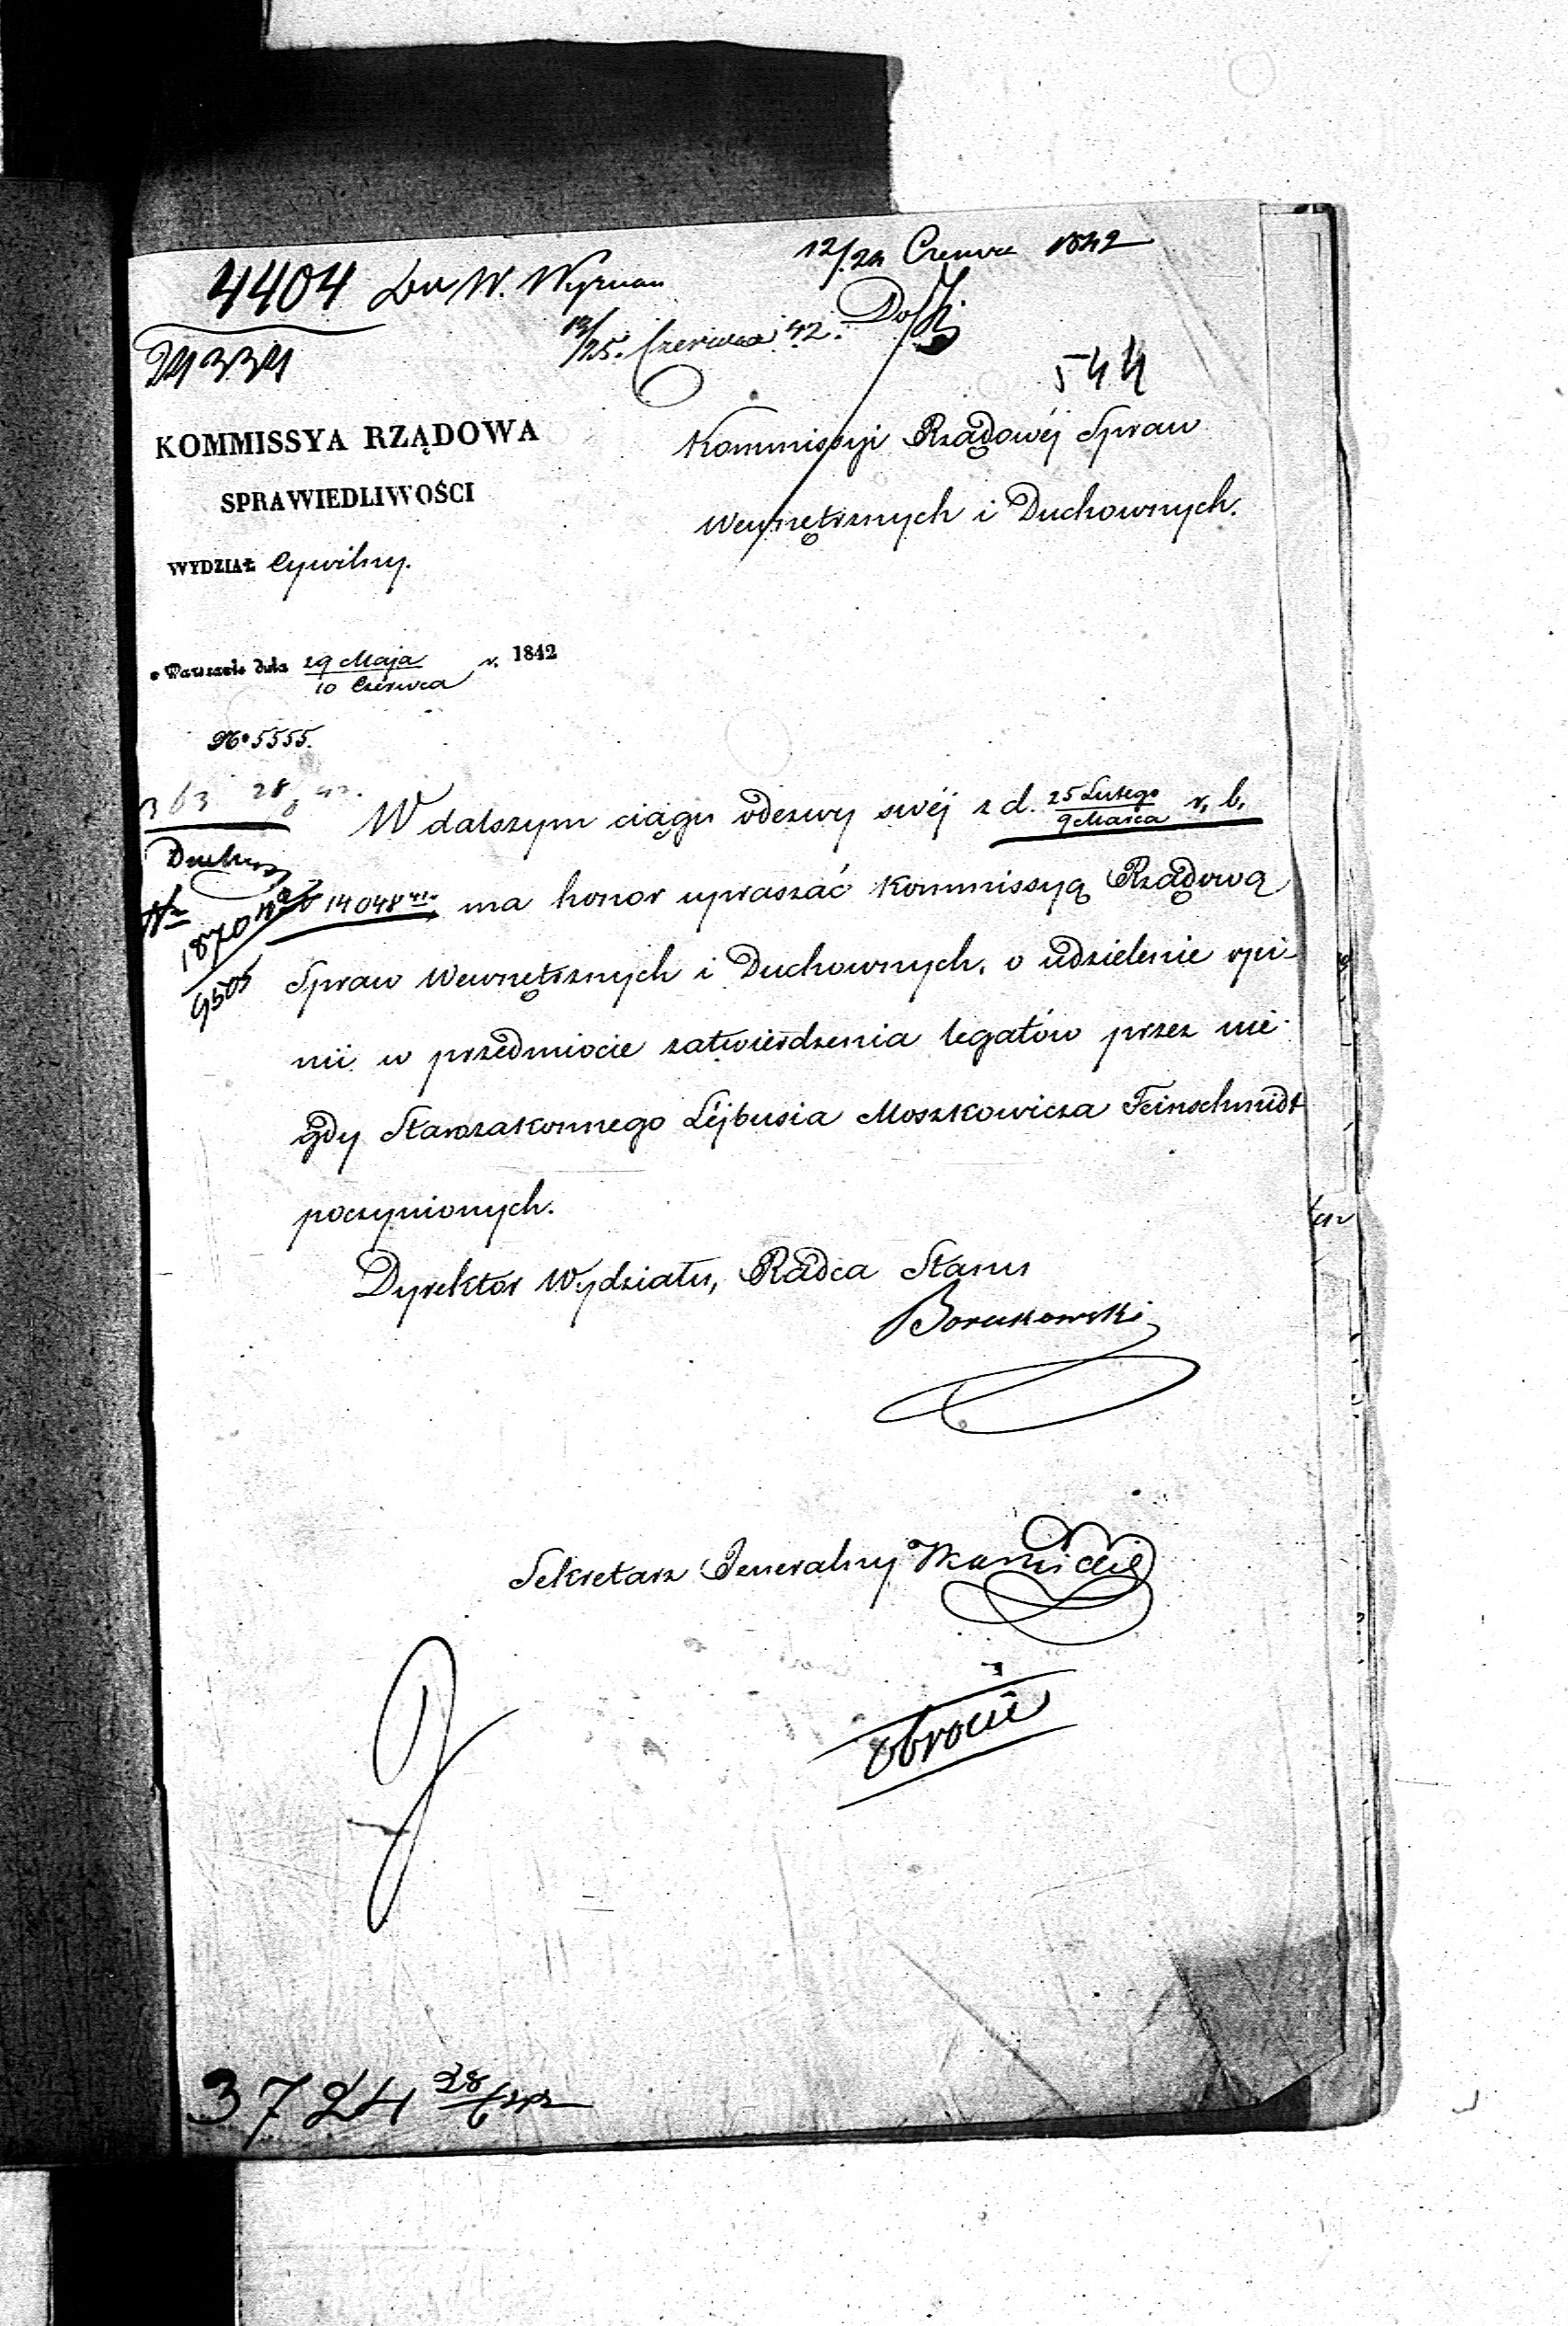 12/24 Czerwca 1842
4404 Do W. Wyznan
13/25. Czerwca 42.
24334
544
KOMMISSYA RZĄDOWA
SPRAWIEDLIWOŚCI
WYDZIAŁ Cywilny.
w Warszawie dnia 29 Maja / 10 Czerwca r. 1842
No 5555.
Kommissyi Rządowéj Spraw
Wewnętrznych i Duchownych.
363 28/6 42.
W dalszym ciągu odezwy swéj z d. 25 Lutego / 9 Marca r. b.
Duchow
Nr 14048 ma honor upraszać Kommissyą Rządową
1870
9505
Spraw Wewnętrznych i Duchownych, o udzielenie opi-
nii w przedmiocie zatwierdzenia legatów przez nie-
gdy Starozakonnego Lejbusia Moszkowicza Feinschmidt
poczynionych.
Dyrektor Wydziału, Radca Stanu
Sekretarz Jeneralny
obrocić
3724 28/6